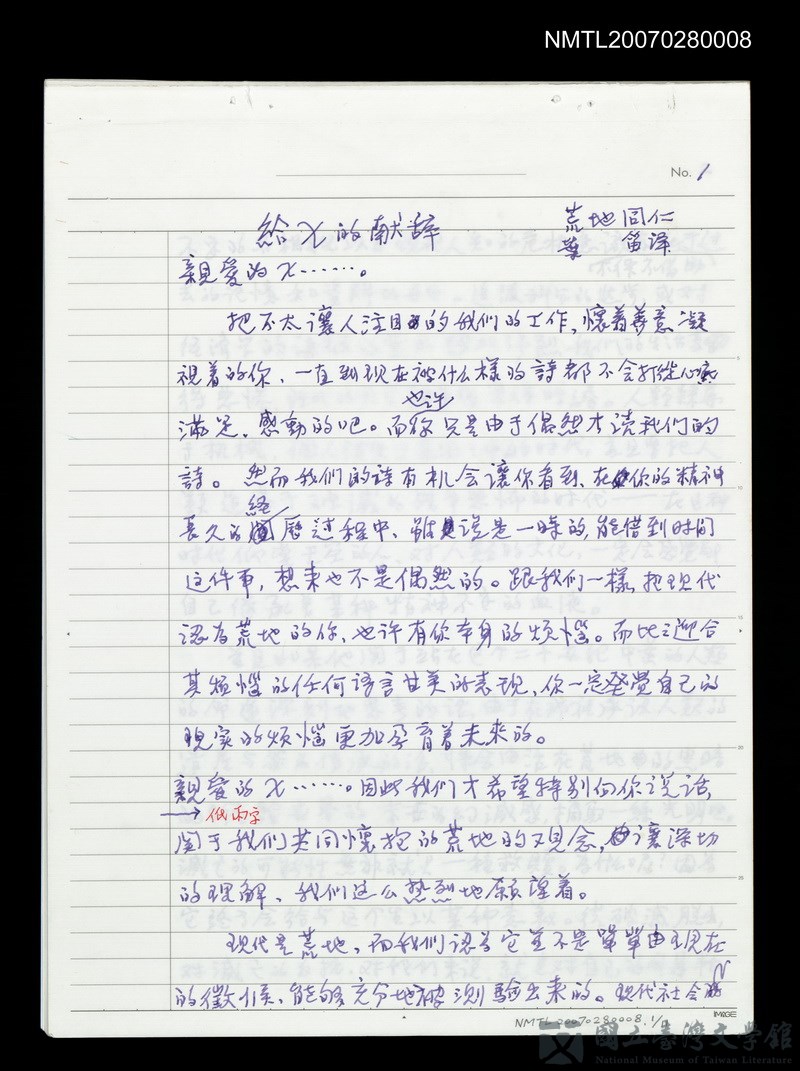 NMTL20070280008
No. 1
給X的献辞
荒地同仁
笛译
親爱的X……。
把不太讓人注目的我们的工作、懷着善意凝
視着的你、一直到现在被什么樣的詩都不会打從心底
也许
滿足、感動的吧。而你只是由于偶然才读我们的
詩。然而我们的詩有机会讓你看到、在你的精神
経
長久的歴过程中、雖说是一時的,能借到时间
这件事,想来也不是偶然的。跟我们一樣,把现代
認為荒地的你、也许有你本身的煩惱。而比迎合
其煩惱的任何语言甘美的表现,你一定發覺自己的
现实的煩惱更加孕育着未来的。
親爱的X……。因此我们才希望特别向你说话,
低兩字
関于我们共同懷抱的荒地的观念,讓深切
的理解、我们这么热烈地願望着。
现代是荒地,而我们認为它並不是單單由现在
的徵候、能够充分地被測驗出来的。现代社会
IMAGE
NMTL20070280008.1/
國立臺灣文學館
National Museum of Taiwan Literature